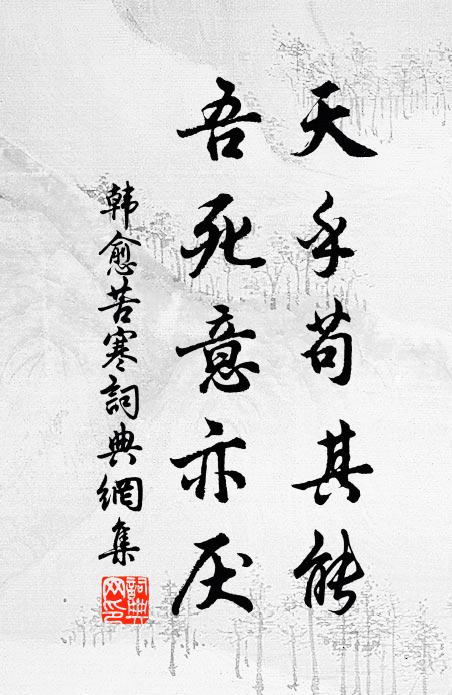 天乎苟其能
吾死意亦厌
韩愈苦寒詞典網集
詞典